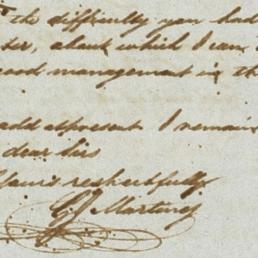 the difficulty you had
about which I can
good management in the
add at present I remain
dear sir
Yours respectfully